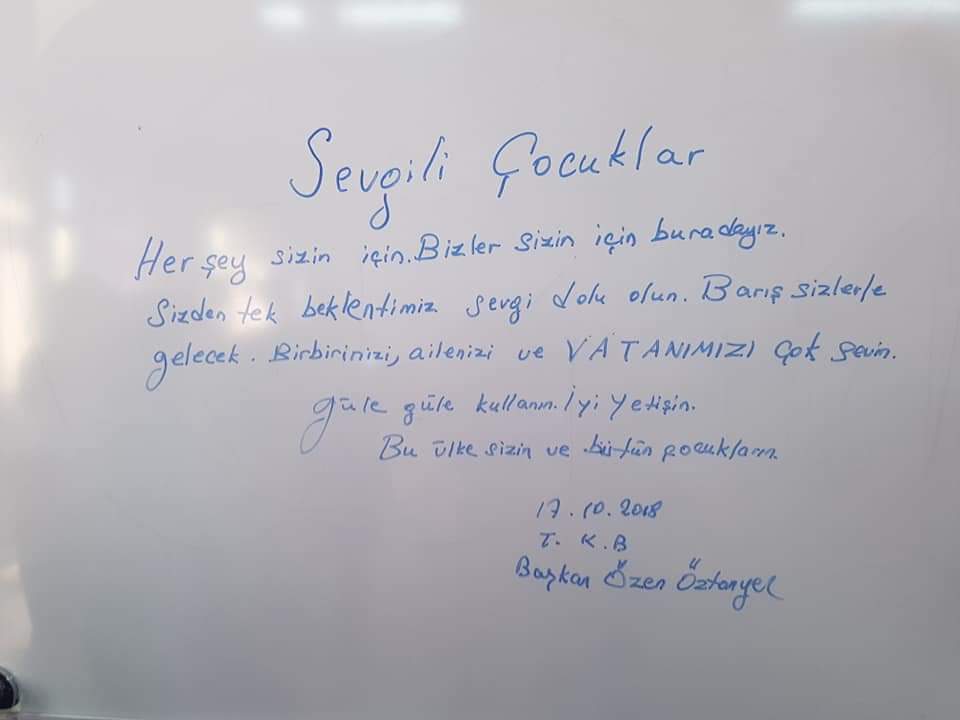 Sevgili Çocuklar
Herşey sizin için. Bizler sizin için buradayız.
Sizden tek beklentimiz sevgi dolu olun. Barış sizlerle
gelecek. Birbirinizi, ailenizi ve VATANIMIZI çok sevin.
güle güle kullanın. İyi yetişin.
Bu ülke sizin ve bütün çocukların.
17.10.2018
T. K. B
Başkan Özen Öztanyel